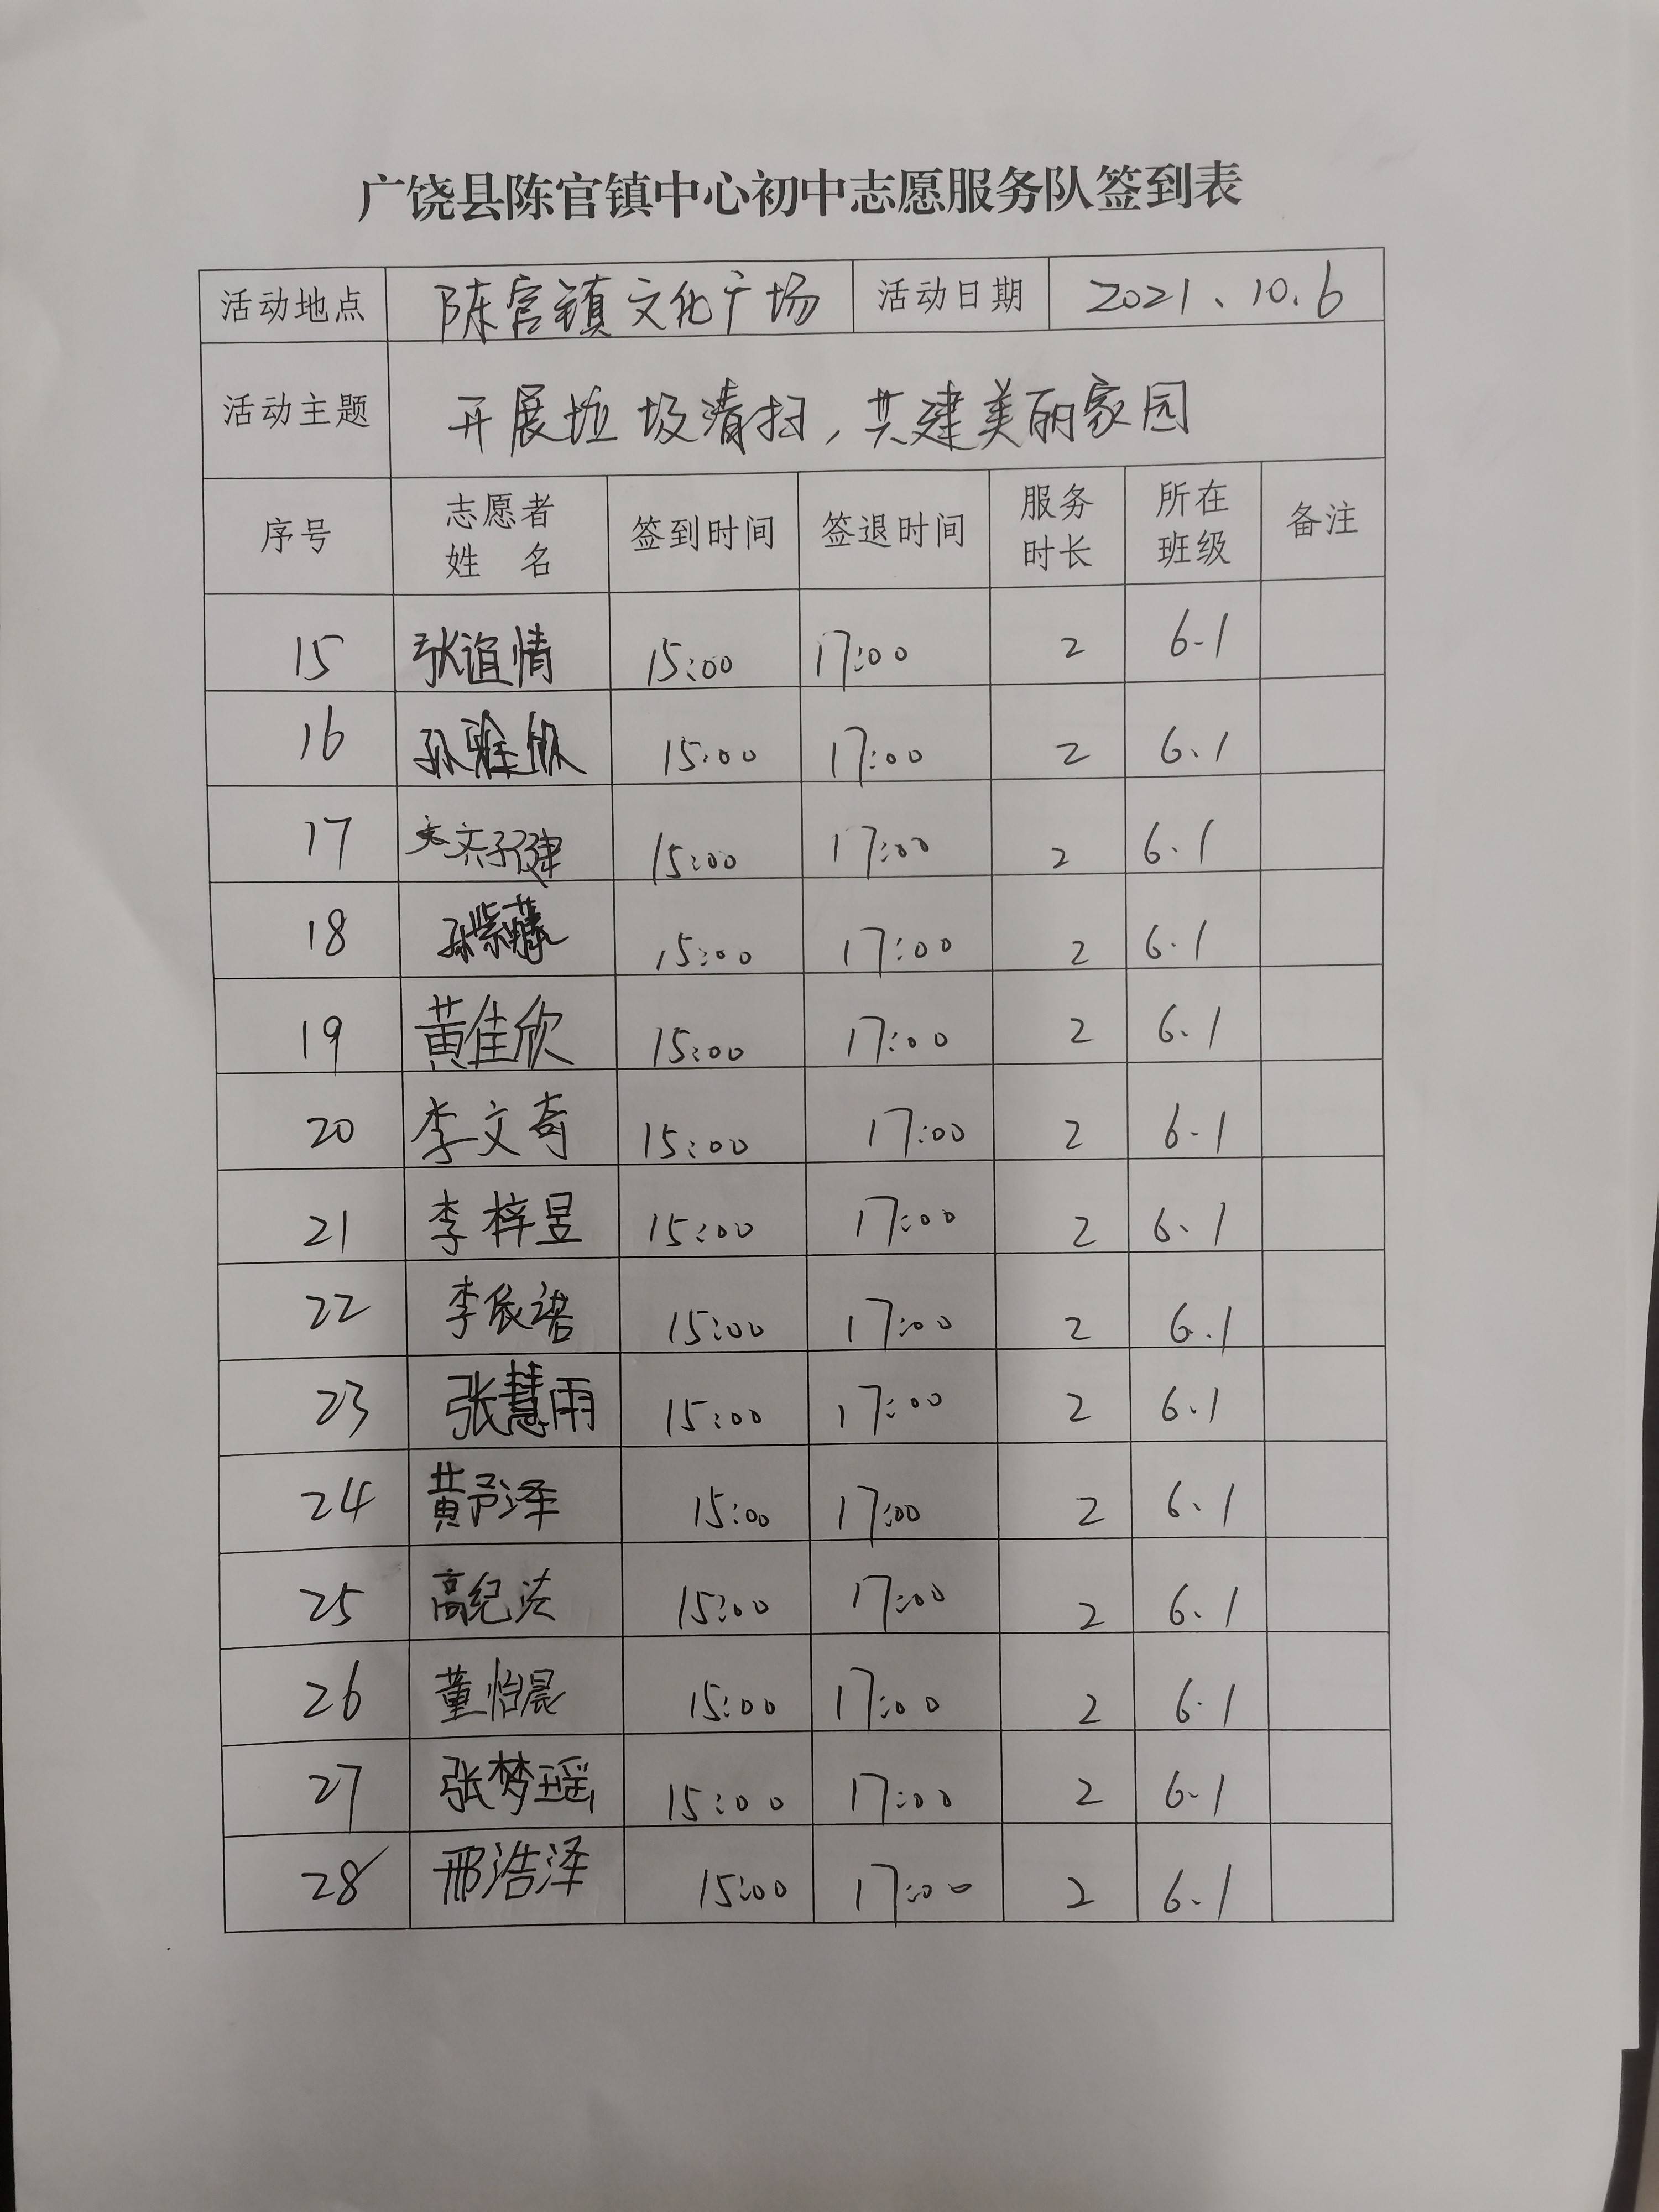 广饶县陈官镇中心初中志愿服务队签到表
活动地点 陈官镇文化广场 活动日期 2021、10.6
活动主题 开展垃圾清扫，共建美丽家园
序号 志愿者姓名 签到时间 签退时间 服务时长 所在班级 备注
15 张谊情 15:00 17:00 2 6.1
16 孙雅欣 15:00 17:00 2 6.1
17 15:00 17:00 2 6.1
18 孙紫藤 15:00 17:00 2 6.1
19 黄佳欣 15:00 17:00 2 6.1
20 李文奇 15:00 17:00 2 6.1
21 李梓昱 15:00 17:00 2 6.1
22 李依诺 15:00 17:00 2 6.1
23 张慧雨 15:00 17:00 2 6.1
24 黄予泽 15:00 17:00 2 6.1
25 高纪法 15:00 17:00 2 6.1
26 董怡晨 15:00 17:00 2 6.1
27 张梦瑶 15:00 17:00 2 6.1
28 邢浩泽 15:00 17:00 2 6.1